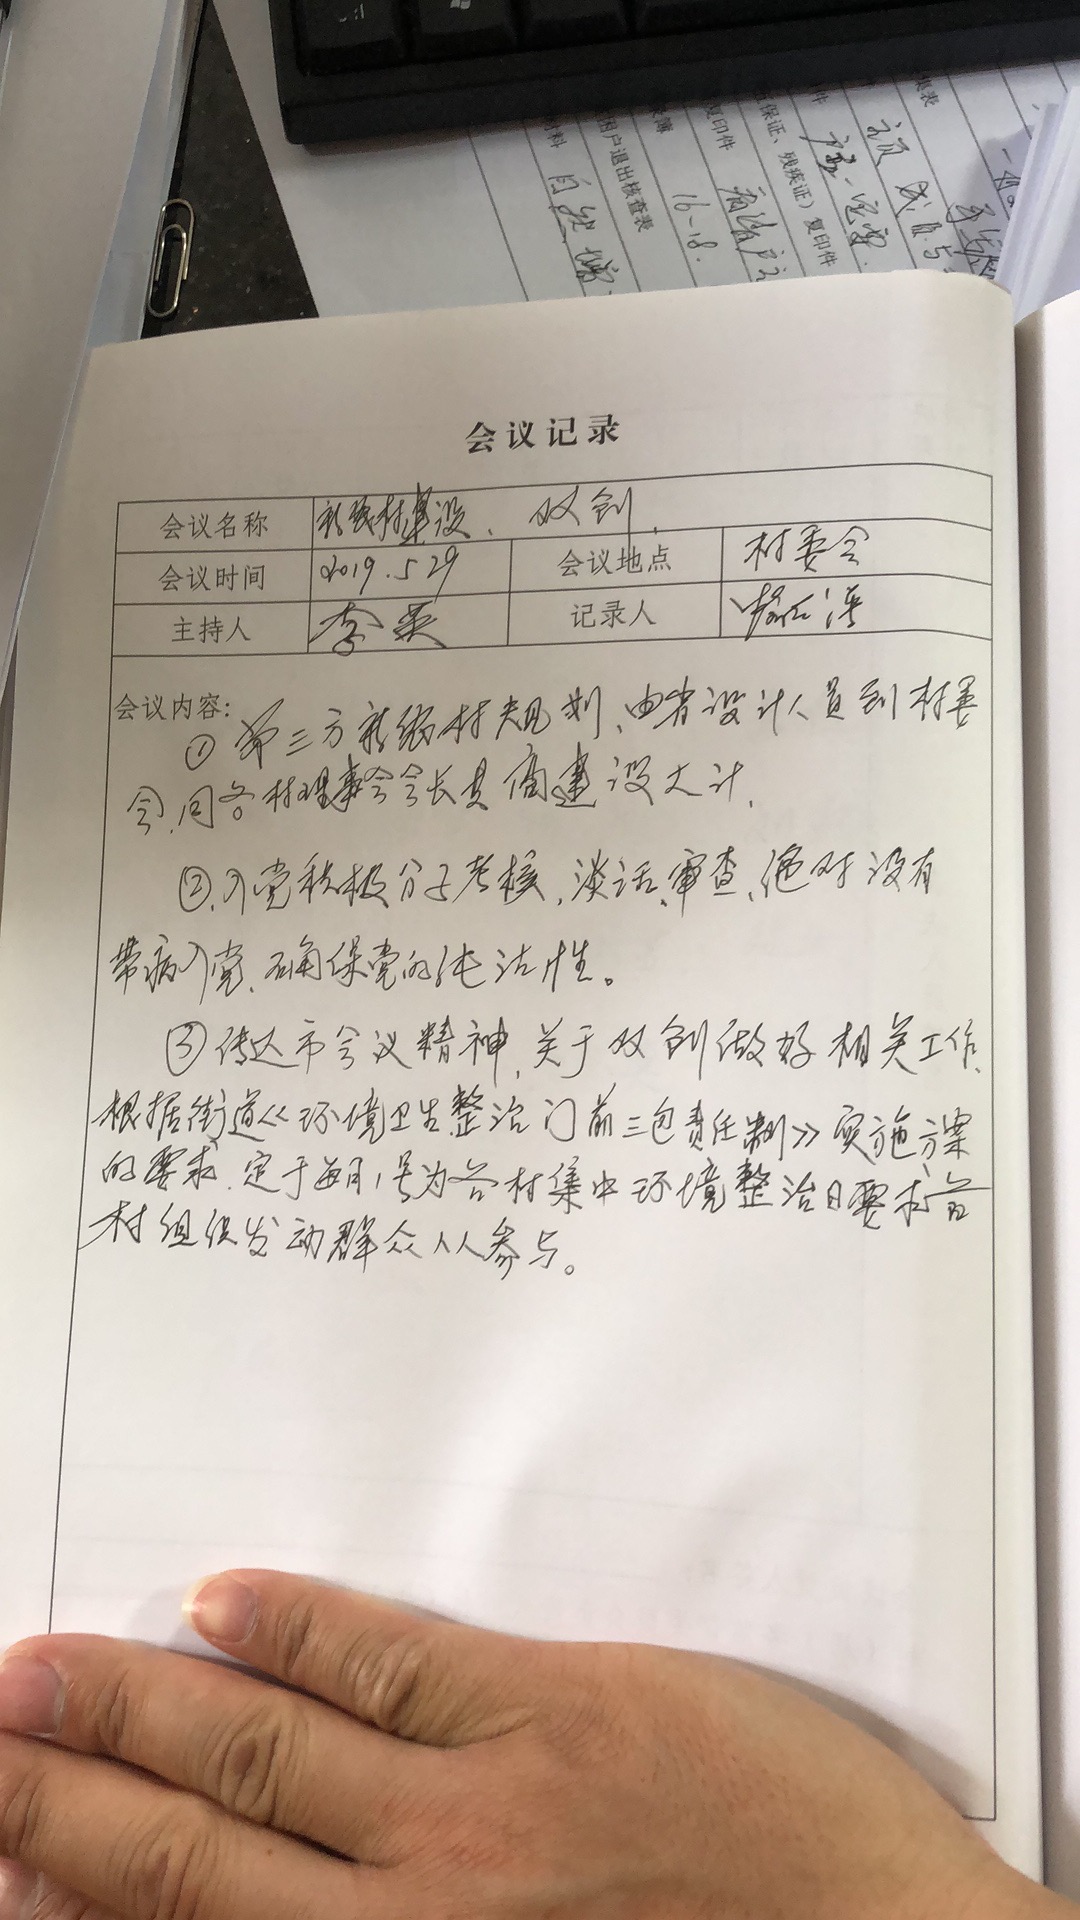 表
保证、残疾证）复印件
复印件
困户退出核查表
16-18.
材料
会议记录
会议名称 新农村建设、双创.
会议时间 2019.5 29 会议地点 村委会
主持人 李英 记录人
会议内容:
① 第三方新农村规划、由省设计人员到村委
会、同各村理事会会长共商建设大计.
②、入党积极分子考核、谈话、审查、绝对没有
带病入党、确保党的纯洁性。
③传达市会议精神、关于双创做好相关工作、
根据街道《环境卫生整治门前三包责任制》实施方案
的要求、定于每月1号为各村集中环境整治日要求各
村组织发动群众人人参与。